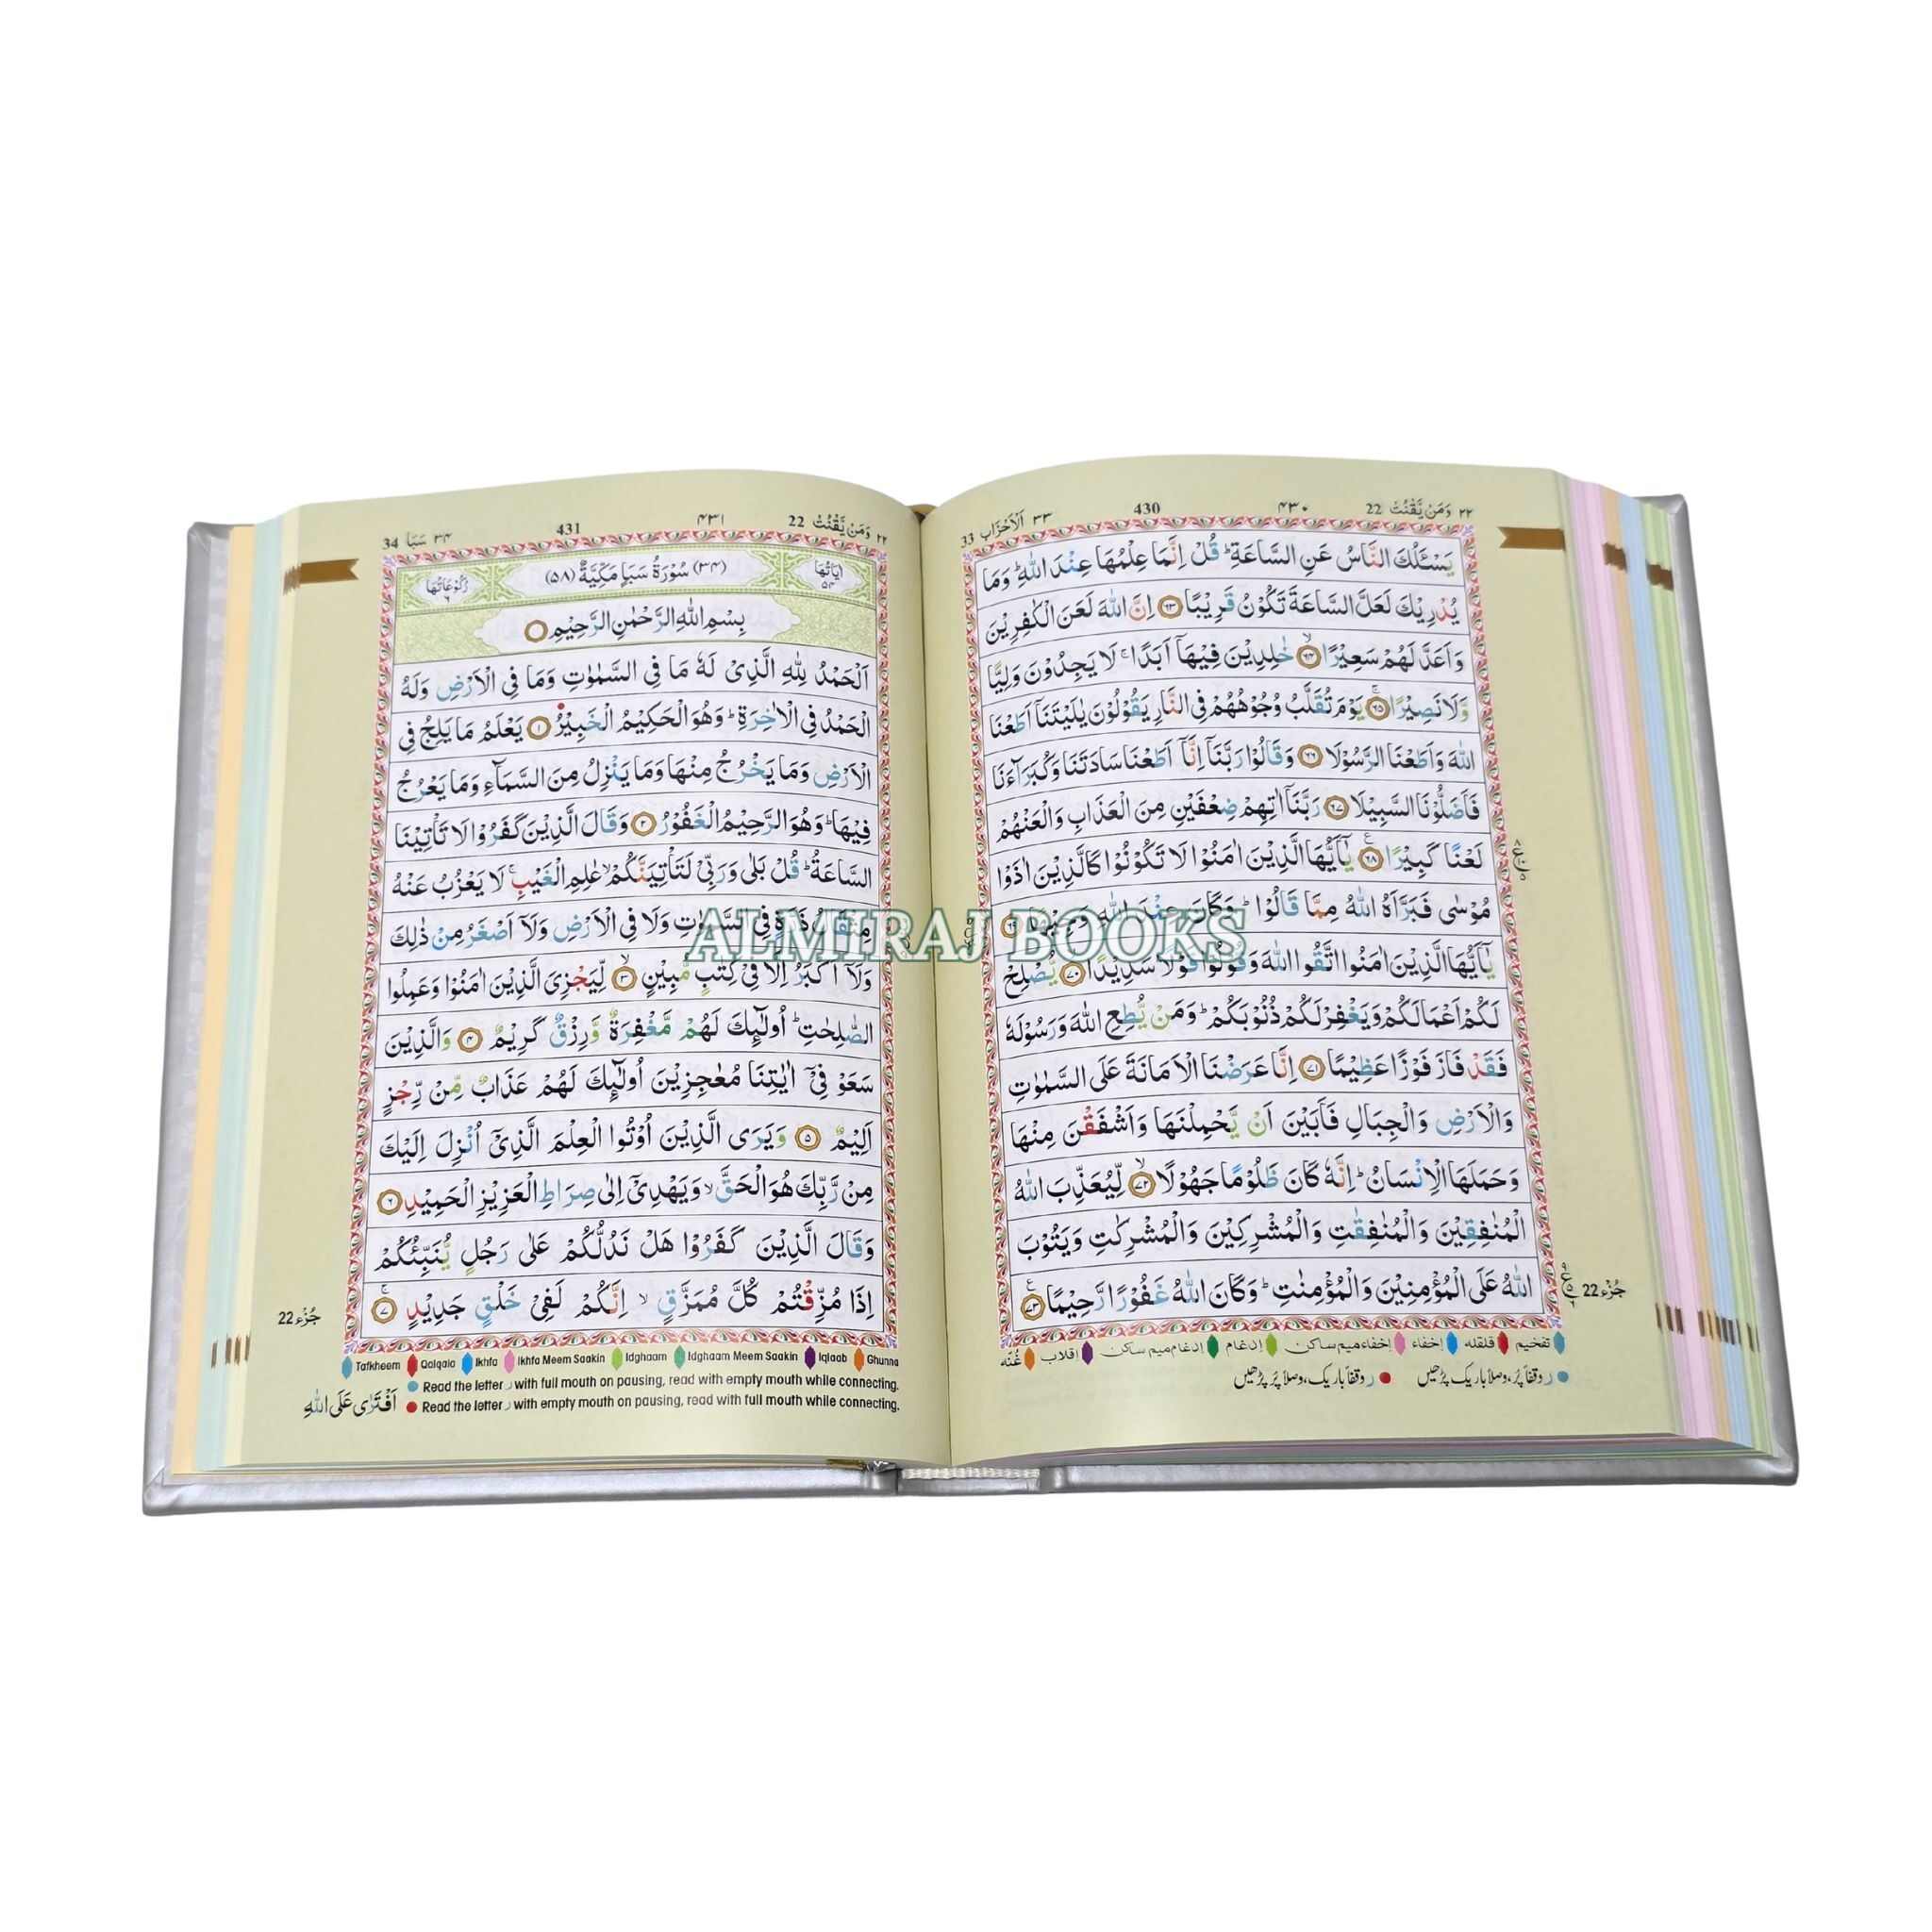 ٢٢ وَمَنْ يَّقْنُتْ 22
۴۳۰
430
٣٣ اَلْاَحْزَاب 33
يَسْـَٔلُكَ النَّاسُ عَنِ السَّاعَةِ ؕ قُلْ اِنَّمَا عِلْمُهَا عِنْدَ اللّٰهِ ؕ وَمَا
يُدْرِيْكَ لَعَلَّ السَّاعَةَ تَكُوْنُ قَرِيْبًا ۝٦٣ اِنَّ اللّٰهَ لَعَنَ الْكٰفِرِيْنَ
وَاَعَدَّ لَهُمْ سَعِيْرًا ۝٦٤ خٰلِدِيْنَ فِيْهَاۤ اَبَدًا ۚ لَا يَجِدُوْنَ وَلِيًّا
وَّلَا نَصِيْرًا ۝٦٥ يَوْمَ تُقَلَّبُ وُجُوْهُهُمْ فِى النَّارِ يَقُوْلُوْنَ يٰلَيْتَنَاۤ اَطَعْنَا
اللّٰهَ وَاَطَعْنَا الرَّسُوْلَا ۝٦٦ وَقَالُوْا رَبَّنَاۤ اِنَّاۤ اَطَعْنَا سَادَتَنَا وَكُبَرَآءَنَا
فَاَضَلُّوْنَا السَّبِيْلَا ۝٦٧ رَبَّنَاۤ اٰتِهِمْ ضِعْفَيْنِ مِنَ الْعَذَابِ وَالْعَنْهُمْ
لَعْنًا كَبِيْرًا ۝٦٨ يٰۤاَيُّهَا الَّذِيْنَ اٰمَنُوْا لَا تَكُوْنُوْا كَالَّذِيْنَ اٰذَوْا
مُوْسٰى فَبَرَّاَهُ اللّٰهُ مِمَّا قَالُوْا ؕ وَكَانَ عِنْدَ اللّٰهِ وَجِيْهًا ۝٦٩
يٰۤاَيُّهَا الَّذِيْنَ اٰمَنُوا اتَّقُوا اللّٰهَ وَقُوْلُوْا قَوْلًا سَدِيْدًا ۝٧٠ يُّصْلِحْ
لَكُمْ اَعْمَالَكُمْ وَيَغْفِرْ لَكُمْ ذُنُوْبَكُمْ ؕ وَمَنْ يُّطِعِ اللّٰهَ وَرَسُوْلَهٗ
فَقَدْ فَازَ فَوْزًا عَظِيْمًا ۝٧١ اِنَّا عَرَضْنَا الْاَمَانَةَ عَلَى السَّمٰوٰتِ
وَالْاَرْضِ وَالْجِبَالِ فَاَبَيْنَ اَنْ يَّحْمِلْنَهَا وَاَشْفَقْنَ مِنْهَا
وَحَمَلَهَا الْاِنْسَانُ ؕ اِنَّهٗ كَانَ ظَلُوْمًا جَهُوْلًا ۝٧٢ لِّيُعَذِّبَ اللّٰهُ
الْمُنٰفِقِيْنَ وَالْمُنٰفِقٰتِ وَالْمُشْرِكِيْنَ وَالْمُشْرِكٰتِ وَيَتُوْبَ
اللّٰهُ عَلَى الْمُؤْمِنِيْنَ وَالْمُؤْمِنٰتِ ؕ وَكَانَ اللّٰهُ غَفُوْرًا رَّحِيْمًا ۝٧٣
جُزْء 22
تفخیم قلقله إخفاء إخفاء میم ساکن إدغام إدغام میم ساکن إقلاب غُنّه
ر وقفاً پُر، وصلاً باریک پڑھیں ر وقفاً باریک، وصلاً پُر پڑھیں
٢٢ وَمَنْ يَّقْنُتْ 22
۴۳۱
431
۳۴ سَبَا 34
اٰيَاتُهَا ۵۴
(۳۴) سُوْرَةُ سَبَاٍ مَكِّيَّةٌ (۵۸)
رُكُوْعَاتُهَا ۶
بِسْمِ اللّٰهِ الرَّحْمٰنِ الرَّحِيْمِ
اَلْحَمْدُ لِلّٰهِ الَّذِىْ لَهٗ مَا فِى السَّمٰوٰتِ وَمَا فِى الْاَرْضِ وَلَهُ
الْحَمْدُ فِى الْاٰخِرَةِ ؕ وَهُوَ الْحَكِيْمُ الْخَبِيْرُ ۝١ يَعْلَمُ مَا يَلِجُ فِى
الْاَرْضِ وَمَا يَخْرُجُ مِنْهَا وَمَا يَنْزِلُ مِنَ السَّمَآءِ وَمَا يَعْرُجُ
فِيْهَا ؕ وَهُوَ الرَّحِيْمُ الْغَفُوْرُ ۝٢ وَقَالَ الَّذِيْنَ كَفَرُوْا لَا تَاْتِيْنَا
السَّاعَةُ ؕ قُلْ بَلٰى وَرَبِّىْ لَتَاْتِيَنَّكُمْ ۙ عٰلِمِ الْغَيْبِ ۚ لَا يَعْزُبُ عَنْهُ
مِثْقَالُ ذَرَّةٍ فِى السَّمٰوٰتِ وَلَا فِى الْاَرْضِ وَلَاۤ اَصْغَرُ مِنْ ذٰلِكَ
وَلَاۤ اَكْبَرُ اِلَّا فِىْ كِتٰبٍ مُّبِيْنٍ ۝٣ لِّيَجْزِىَ الَّذِيْنَ اٰمَنُوْا وَعَمِلُوا
الصّٰلِحٰتِ ؕ اُولٰٓئِكَ لَهُمْ مَّغْفِرَةٌ وَّرِزْقٌ كَرِيْمٌ ۝٤ وَالَّذِيْنَ
سَعَوْ فِىْۤ اٰيٰتِنَا مُعٰجِزِيْنَ اُولٰٓئِكَ لَهُمْ عَذَابٌ مِّنْ رِّجْزٍ
اَلِيْمٌ ۝٥ وَيَرَى الَّذِيْنَ اُوْتُوا الْعِلْمَ الَّذِىْۤ اُنْزِلَ اِلَيْكَ
مِنْ رَّبِّكَ هُوَ الْحَقَّ ۙ وَيَهْدِىْۤ اِلٰى صِرَاطِ الْعَزِيْزِ الْحَمِيْدِ ۝٦
وَقَالَ الَّذِيْنَ كَفَرُوْا هَلْ نَدُلُّكُمْ عَلٰى رَجُلٍ يُّنَبِّئُكُمْ
اِذَا مُزِّقْتُمْ كُلَّ مُمَزَّقٍ ۙ اِنَّكُمْ لَفِىْ خَلْقٍ جَدِيْدٍ ۝٧
جُزْء 22
Tafkheem Qalqala Ikhfa Ikhfa Meem Saakin Idghaam Idghaam Meem Saakin Iqlaab Ghunna
Read the letter ر with full mouth on pausing, read with empty mouth while connecting.
Read the letter ر with empty mouth on pausing, read with full mouth while connecting.
اَفْتَرٰى عَلَى اللّٰهِ
ALMIRAJ BOOKS